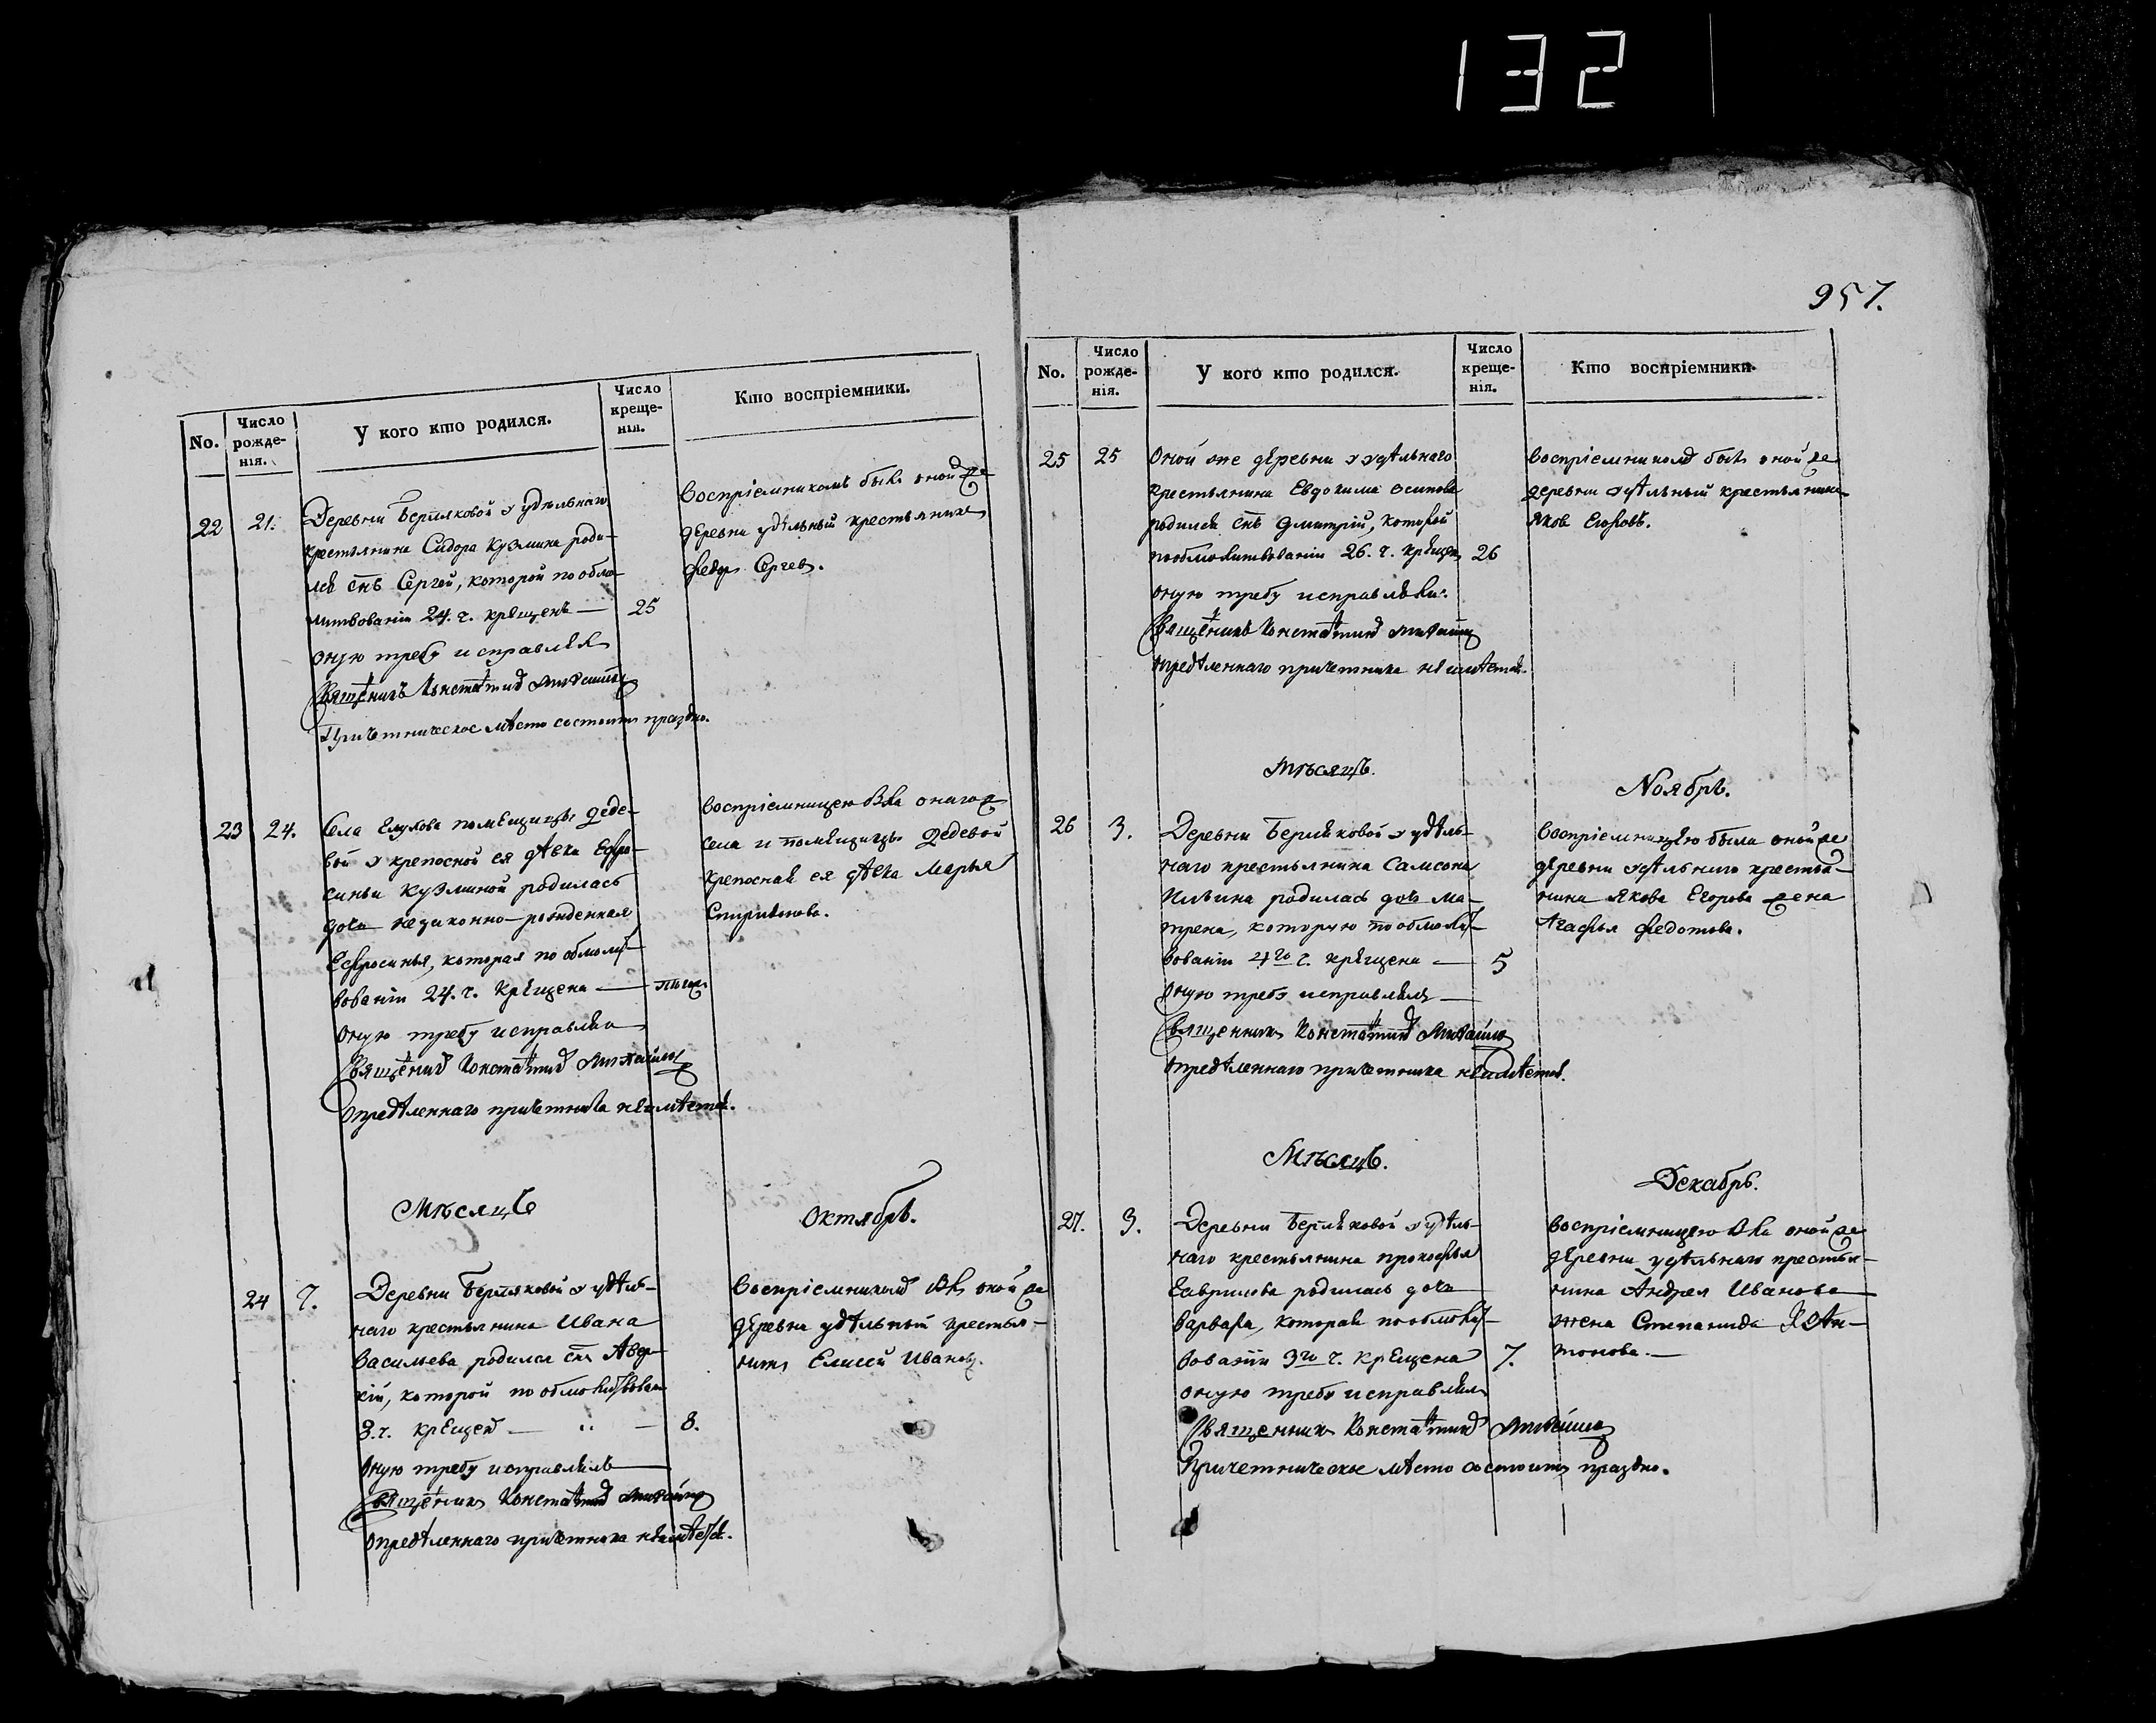 132
957.
No.
Число рожде-
нія.
У кого кто родился.
Число креще-
нія.
Кто воспріемники.
22
21.
Деревни Берляковой у удѣльнаго
крестьянина Сидора Кузмина роди-
лся снъ Сергей, которой по обмо-
литвованіи 24. ч. крещенъ —
25
оную требу исправлялъ
Священикъ Констатинъ
Причетническое мѣсто состоитъ праздно.
Воспріемникомъ былъ оной же
деревни удѣльный крестьянинъ
Федоръ Сергевъ.
23
24.
Села помещицы Деде-
вой у крепосной ея дѣвки Ефро-
синьи Кузминой родилась
дочь незаконно-рожденная
Ефросинья, которая по обмолит-
вованіи 24. ч. крещена —
оную требу исправлялъ
Священикъ Констатинъ
опредѣленнаго причетника не имѣется.
Воспріемницею была онаго ж
села и помещицы Дедевой
крепосная ея дѣвка Марья
Спиридонова.
Мѣсяцъ
Октябрь.
24
7.
Деревни Берляковой у удѣль-
наго крестьянина Ивана
Васильева родился снъ Авер-
кій, которой по обмолитвован
8. ч. крещен —
8.
оную требу исправлялъ
Священикъ Констатинъ
опредѣленнаго причетника не имѣется.
Воспріемникомъ былъ оной же
деревни удѣльный крестья-
нинъ Елисей Ивановъ.
No.
Число рожде-
нія.
У кого кто родился.
Число креще-
нія.
Кто воспріемники.
25
25
Оной же деревни у удѣльнаго
крестьянина Евдокима Осипова
родился снъ Дмитрій, которой
по обмолитвованіи 26. ч. крещен
26
оную требу исправлялъ:
Священикъ Констатинъ
опредѣленнаго причетника не имѣется.
Воспріемникомъ былъ оной же
деревни удѣльный крестьянинъ
Яковъ Егоровъ.
Мѣсяцъ.
Ноябрь.
26
3.
Деревни Берляковой у удѣль-
наго крестьянина Самсона
Ильина родилась дочь Ма-
трена, которую по обмолит-
вованіи 4го ч. крещена —
5
оную требу исправлялъ —
Священникъ Констатинъ
опредѣленнаго причетника не имѣется.
Воспріемницею была оной же
деревни удѣльнаго крестья-
нина Якова Егорова жена
Агафья Федотова.
Мѣсяцъ.
Декабрь.
27.
3.
Деревни Берляковой у удѣль-
наго крестьянина Прокофья
Гаврилова родилась дочь
Варвара, которая по обмолит-
вованіи 3го ч. крещена
7.
оную требу исправлялъ
Священникъ Констатинъ
Причетническое мѣсто состоитъ праздно.
Воспріемницею была оной же
деревни удѣльнаго крестья-
нина Андрея Иванова
жена Степанида Ан-
тонова. —